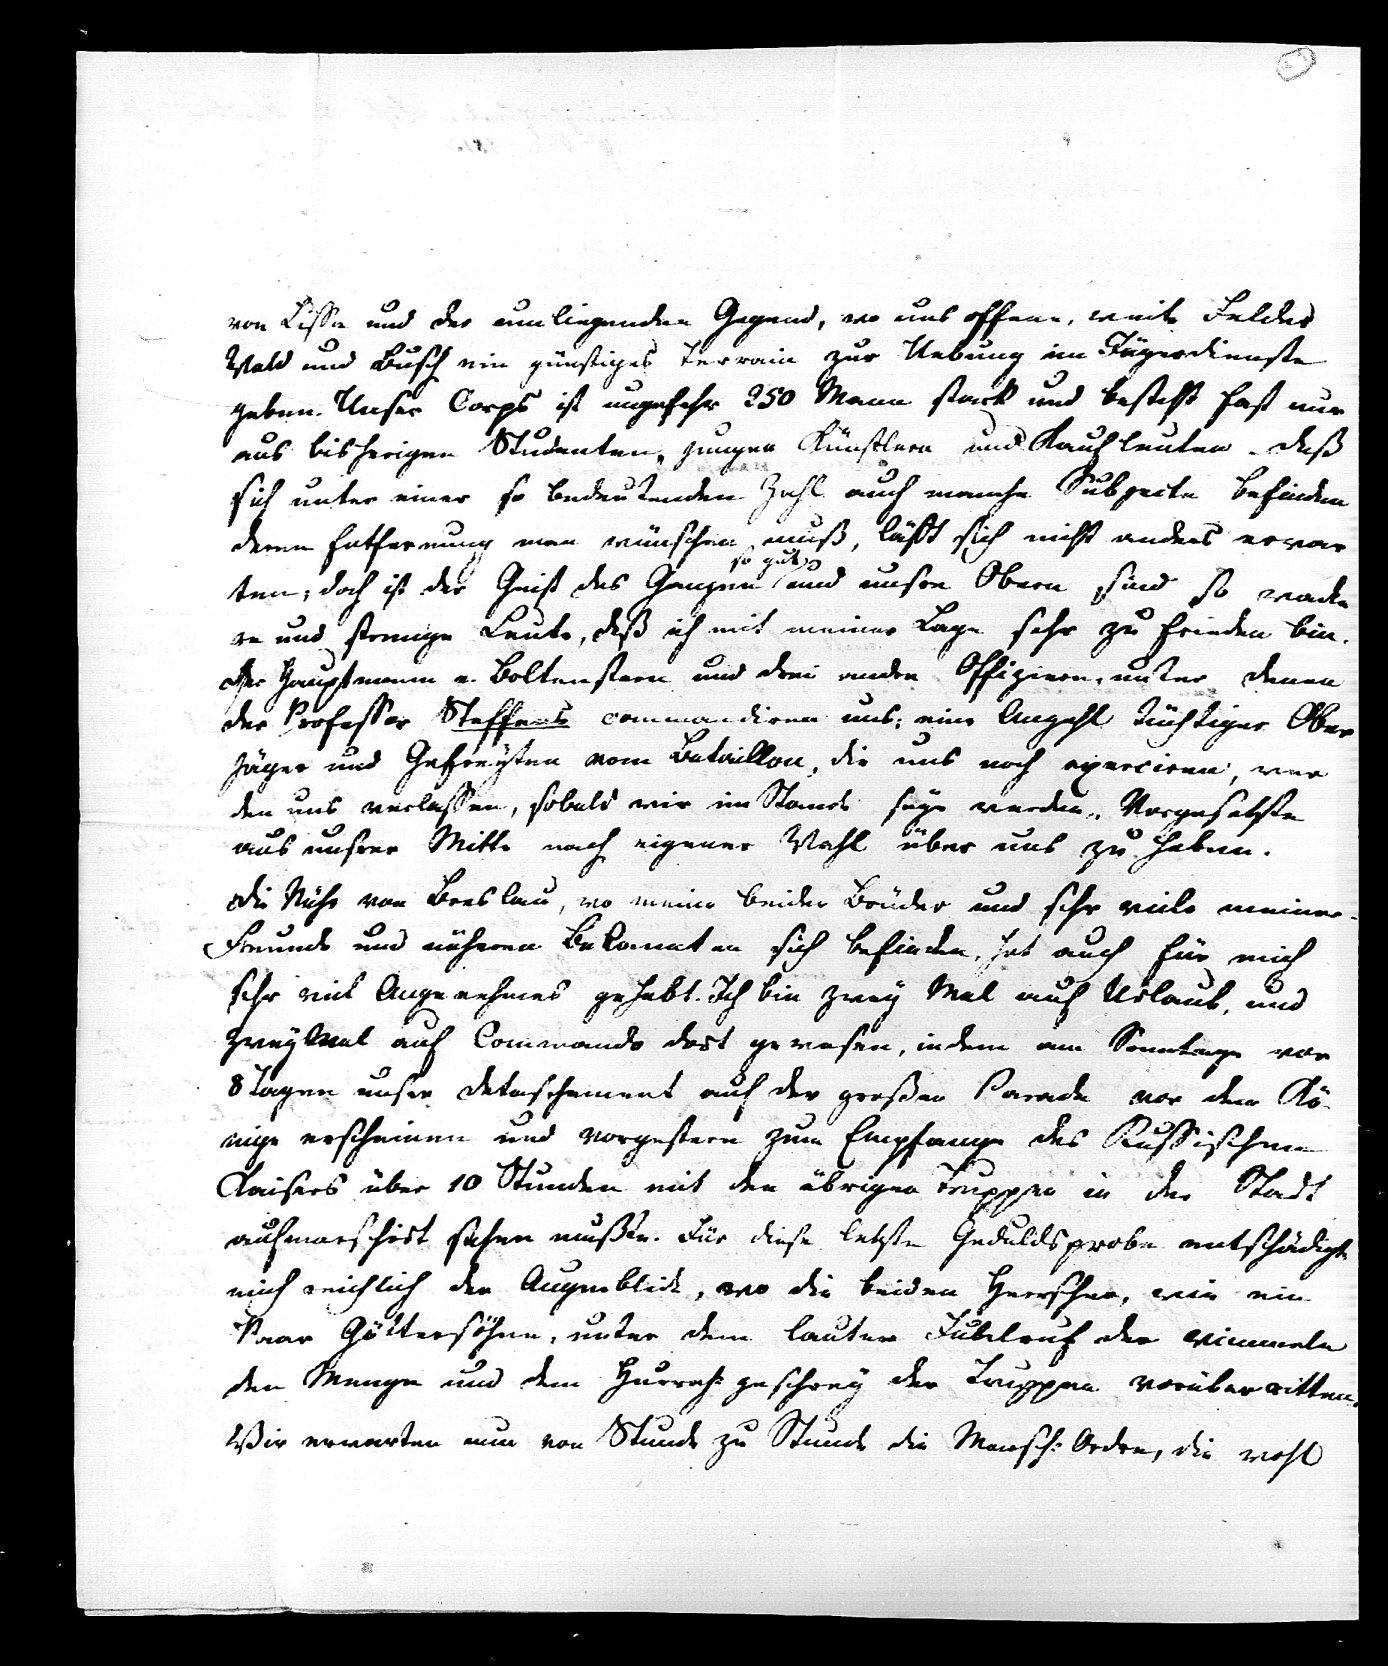 von Lissa und der umliegenden Gegend, wo uns offene, weite Felder
Wald und Busch ein günstiges Terrain zur Uebung im Jägerdienste
geben. Unser Corps ist ungefehr 250 Mann stark und besteht fast nur
aus bisherigen Studenten, jungen Künstlern und Kaufleuten. Daß
sich unter einer so bedeutenden Zahl auch manche Subjecte befinden
deren Entfernung man wünschen muß, läßt sich nicht anders erwar
ten; doch ist der Geist des Ganzen so gut und unsre Obern sind so wacke
re und strenge Leute, daß ich mit meiner Lage sehr zufrieden bin.
Der Hauptmann v. Boltenstern und drei andre Offiziere, unter denen
der Professor Steffens commandiren uns; eine Anzahl tüchtiger Ober
Jäger und Gefreyten vom Bataillon, die uns noch exerciren, wer
den uns verlassen, sobald wir im Stande seyn werden, Vorgesetzte
aus unsrer Mitte nach eigener Wahl über uns zu haben.
Die Nähe von Breslau, wo meine beiden Brüder und sehr viele meiner
Freunde und näheren Bekannten sich befinden, hat auch für mich
sehr viel Angenehmes gehabt. Ich bin zwey Mal auf Urlaub, und
zwey Mal auf Commando dort gewesen, indem am Sonntage vor
8 Tagen unser Detaschement auf der großen Parade vor dem Kö
nige erscheinen und vorgestern zum Empfange des Russischen
Kaisers über 10 Stunden mit den übrigen Truppen in der Stadt
aufmarschirt stehen mußte. Für diese letzte Geduldsprobe entschädigte
mich reichlich der Augenblick, wo die beiden Herrscher, wie ein
Paar Göttersöhne, unter dem lauten Jubelruf der wimmeln
den Menge und dem Hurrah-geschrey der Truppen vorüber ritten.
Wir erwarten nun von Stunde zu Stunde die Marsch-Ordre, die wohl